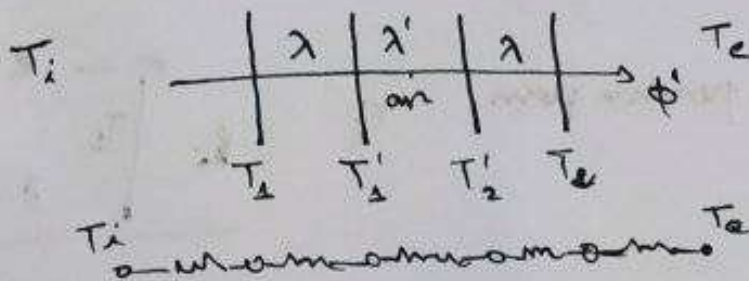 λ λ' λ
T_i T_e
air ϕ'
T_1 T_1' T_2' T_2
T_i T_e